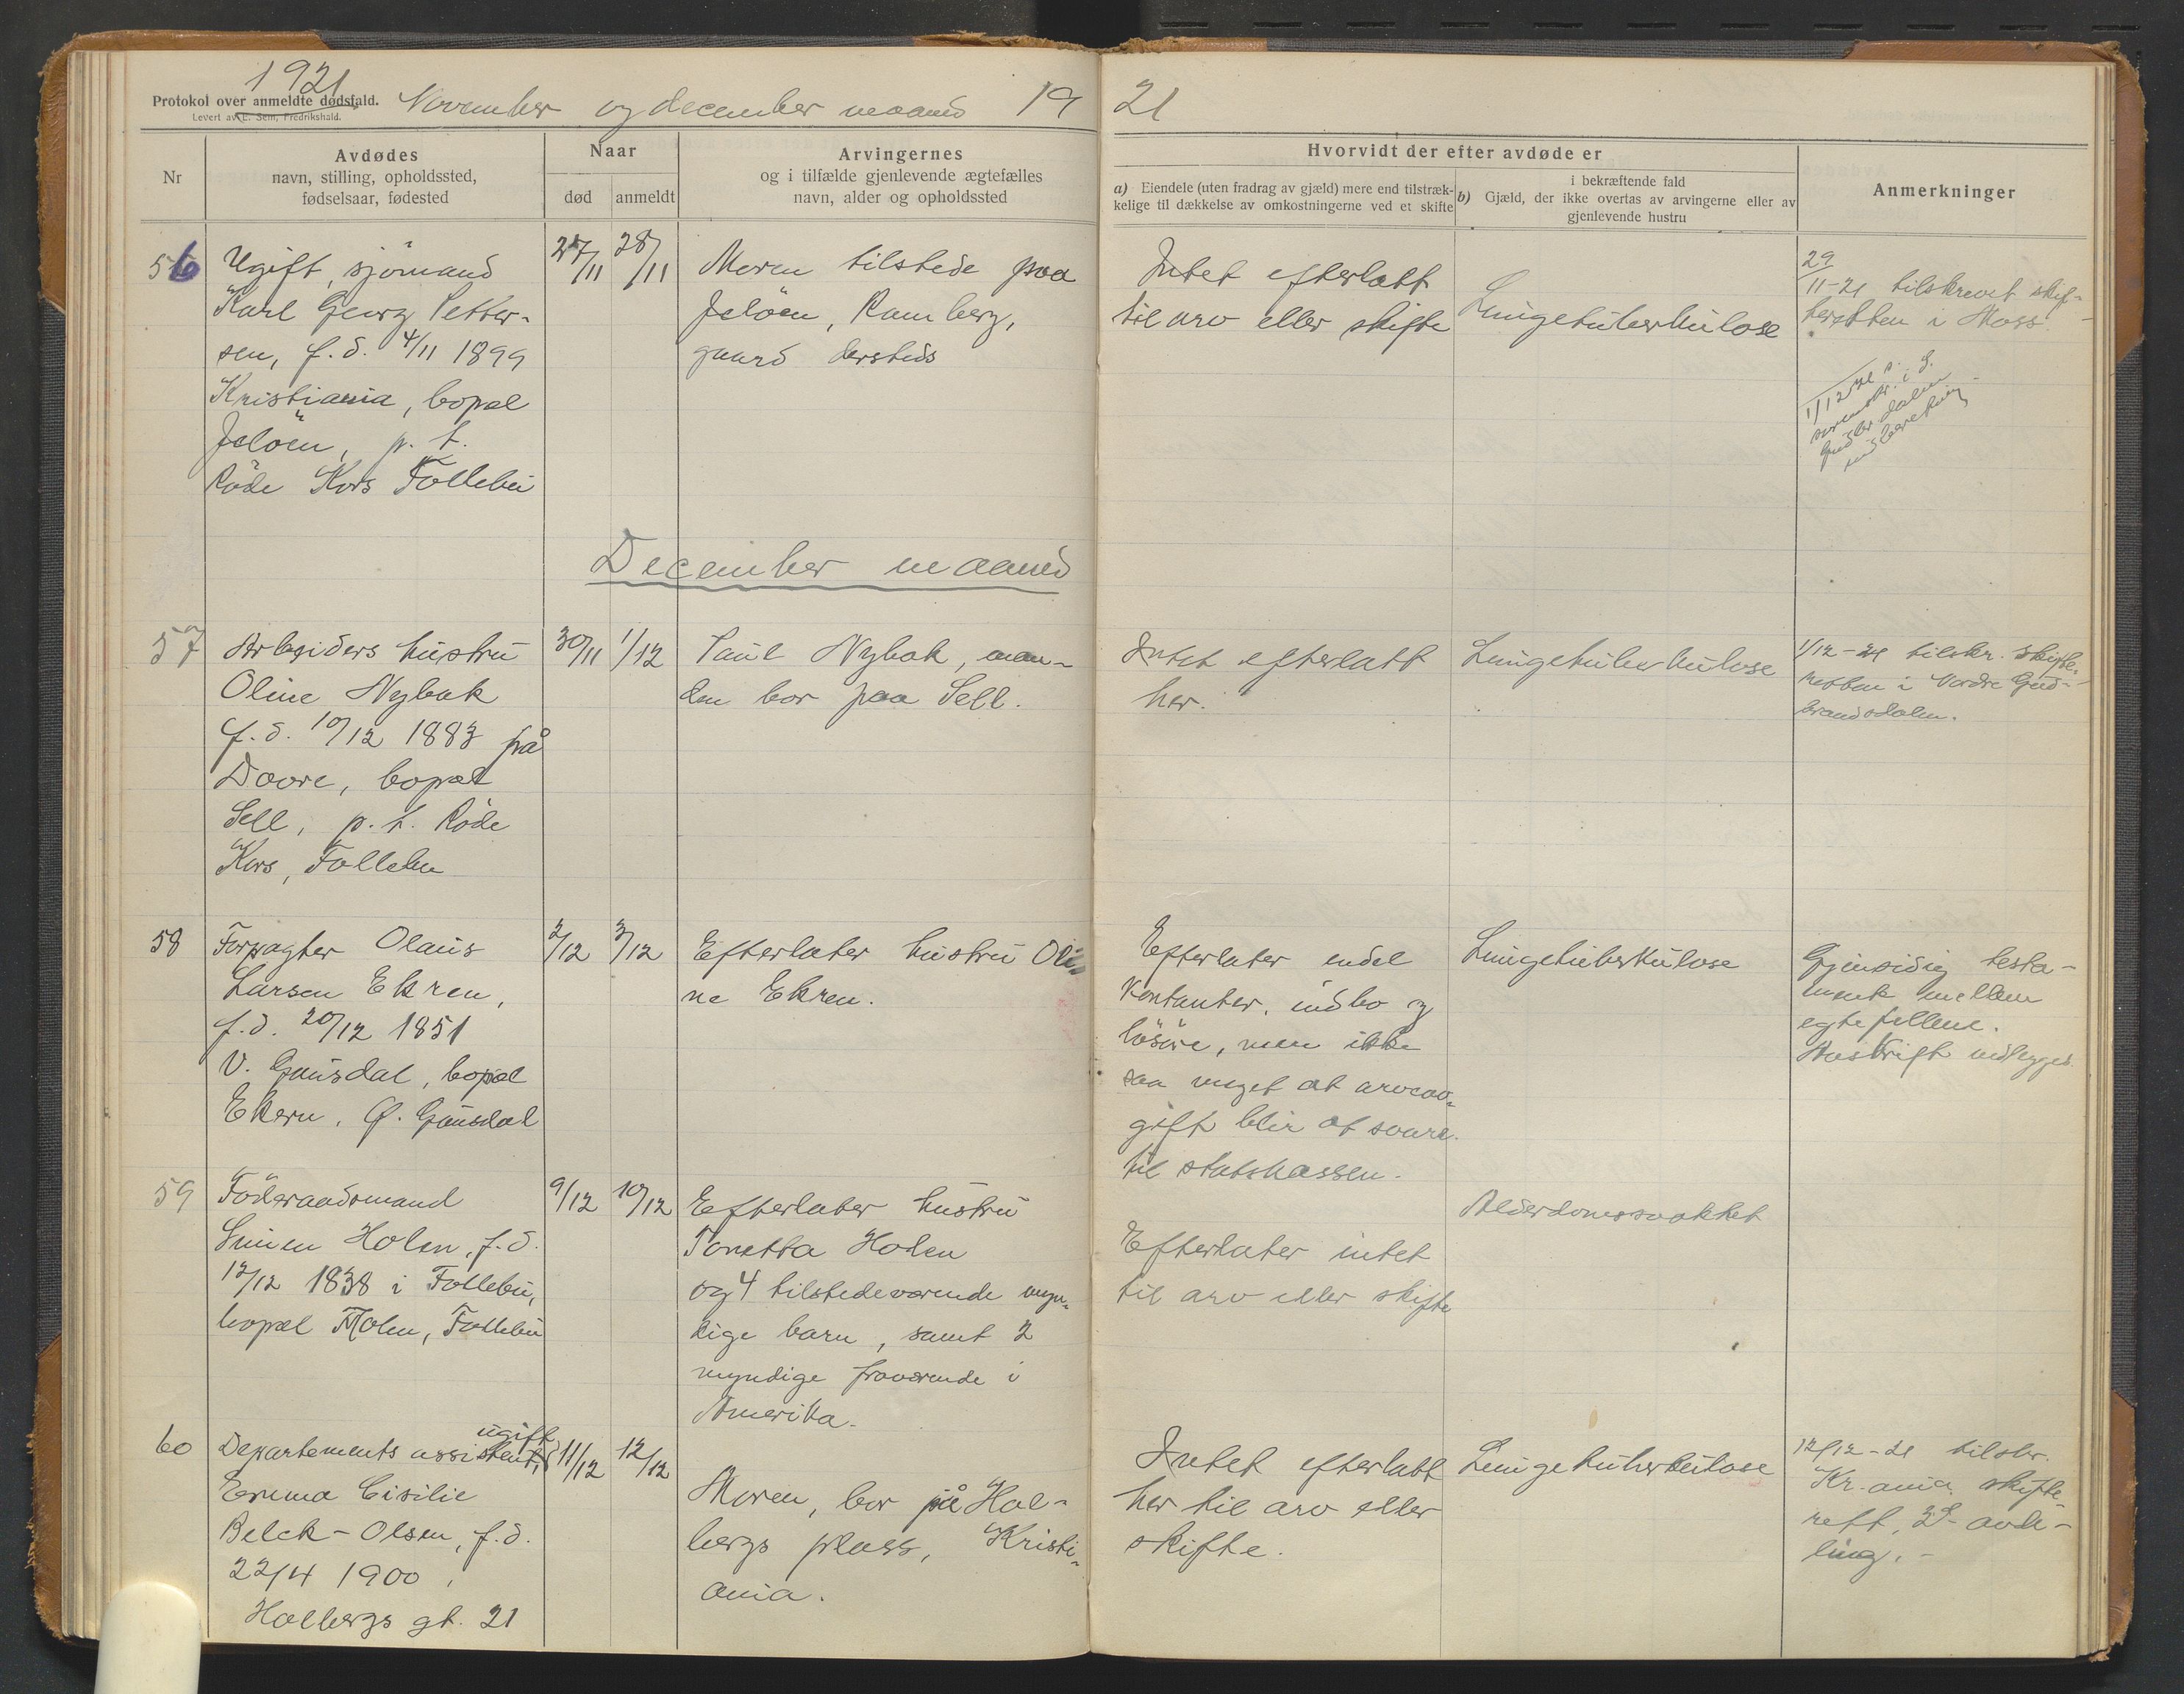 1921
Protokol over anmeldte dødsfald. November og december maaned 19 21
Levert av E. Sem, Fredrikshald.
Nr
Avdødes
navn, stilling, opholdssted,
fødselsaar, fødested
Naar
død
anmeldt
Arvingernes
og i tilfælde gjenlevende ægtefælles
navn, alder og opholdssted
Hvorvidt der efter avdøde er
a) Eiendele (uten fradrag av gjæld) mere end tilstræk-
kelige til dækkelse av omkostningerne ved et skifte
b) i bekræftende fald
Gjæld, der ikke overtas av arvingerne eller av
gjenlevende hustru
Anmerkninger
56
Ugift, sjömand
Karl Georg Petter-
sen, f.d. 4/11 1899
Kristiania, bopæl
Jelöen, p. t.
Röde Kors Follebu
27/11
28/11
Moren tilstede paa
Jelöen, Ramberg,
gaard dersteds
Intet efterlatt
til arv eller skifte
Lungetuberkulose
29
11-21 tilskrevet skif-
teretten i Moss.
December maaned
57
Arbeiders hustru
Oline Nybak
f.d. 10/12 1883 på
Dovre, bopæl
Sell, p. t. Röde
Kors, Follebu
30/11
1/12
Paul Nybak, man-
den bor paa Sell.
Intet efterlatt
her.
Lungetuberkulose
1/12-21 tilskr. skifte-
retten i Nordre Gud-
brandsdalen.
58
Forpagter Olaus
Larsen Ekren,
f.d. 20/12 1851
V. Gausdal, bopæl
Ekern, Ø. Gausdal
2/12
3/12
Efterlater hustru Oli-
ne Ekren.
Efterlater endel
kontanter, indbo og
lösöre, men ikke
saa meget at arveav-
gift blir at svare
til statskassen.
Lungetuberkulose
Gjensidig testa-
ment mellem
egtefellene.
Avskrift vedlegges.
59
Föderaadsmand
Simen Holen, f.d.
12/12 1838 i Follebu,
bopæl Holen, Follebu
9/12
10/12
Efterlater hustru
Tonetta Holen
og 4 tilstedeværende myn-
dige barn, samt 2
myndige fraværende i
Amerika.
Efterlater intet
til arv eller skifte
Alderdomssvakhet
60
ugift
Departements assistent,
Emma Cisilie
Belck-Olsen, f.d.
22/4 1900,
Holbergs gt. 21
11/12
12/12
Moren, bor på Hol-
bergs plass, Kristi-
ania.
Intet efterlatt
her til arv eller
skifte.
Lungetuberkulose
12/12-21 tilskr.
Kr.ania skifte-
rett, avde-
ling.-